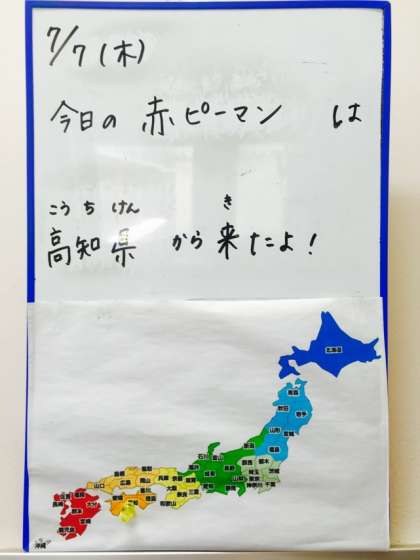 7/7(木)
今日の 赤ピーマン は
こうちけん き
高知県 から 来たよ!
北海道
青森
秋田 岩手
山形 宮城
福島
新潟
石川 富山
群馬 栃木
福井 岐阜 長野 埼玉 茨城
山梨 東京
愛知 静岡 神奈川 千葉
島根 鳥取
兵庫 京都
山口 広島 岡山
大阪
奈良 三重
香川
愛媛 徳島
和歌山
佐賀 福岡
長崎 大分
熊本
宮崎
鹿児島
沖縄